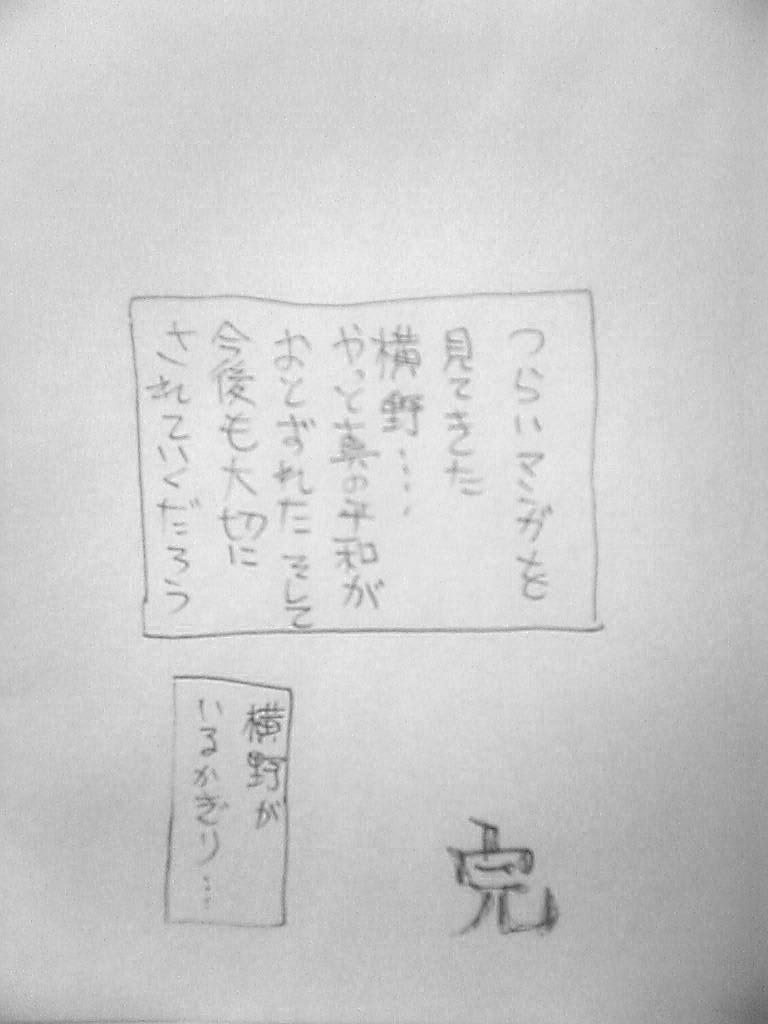 つらいマンガを
見てきた
横野‥‥
やっと真の平和が
おとずれた そして
今後も大切に
されていくだろう
横野が
いるかぎり…
完